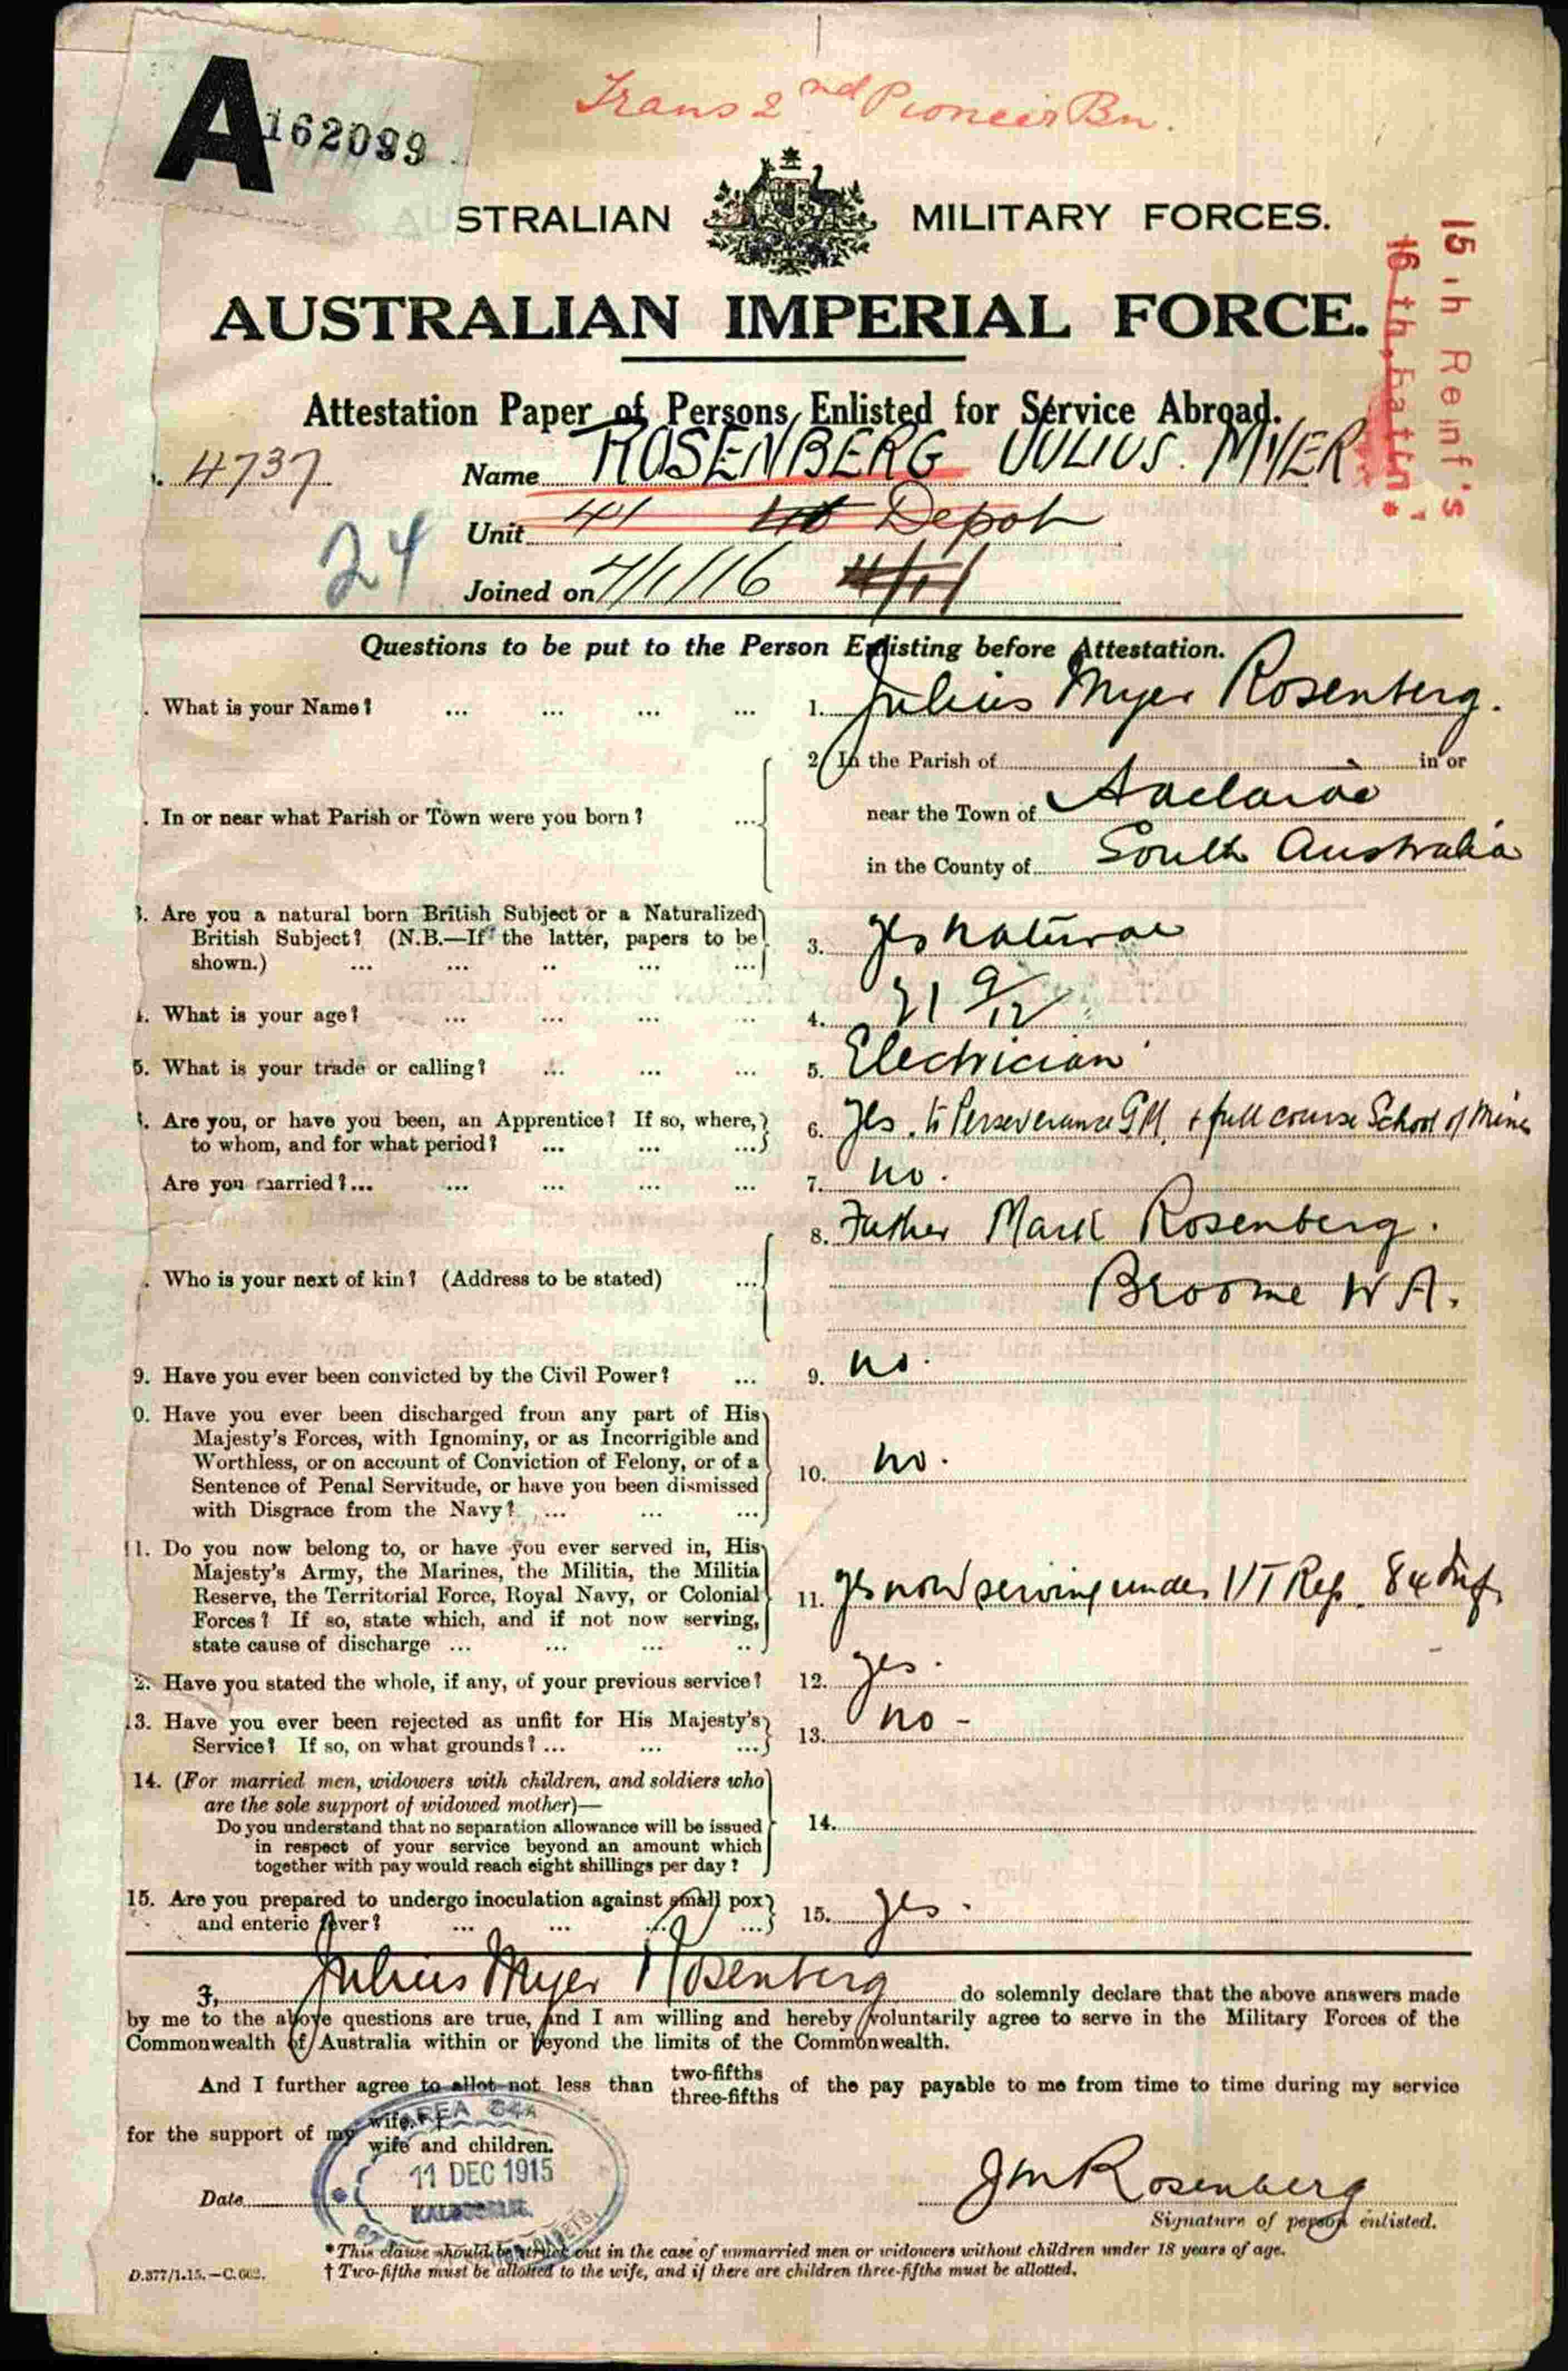 Trans 2nd Pioneer Bn.
A 162099
AUSTRALIAN MILITARY FORCES.
AUSTRALIAN IMPERIAL FORCE.
15th Reinf's
16th Battn.
Attestation Paper of Persons Enlisted for Service Abroad.
. 4737 Name ROSENBERG JULIUS. MYER
Unit 41 Depot
24
Joined on 4/1/16
Questions to be put to the Person Enlisting before Attestation.
. What is your Name? ... ... ... ... 1. Julius Myer Rosenberg.
2. In the Parish of in or
. In or near what Parish or Town were you born? ... near the Town of Adelaide
in the County of South Australia
3. Are you a natural born British Subject or a Naturalized
British Subject? (N.B.—If the latter, papers to be
shown.) ... ... .. ... ... 3. Yes Natural
4. What is your age? ... ... ... ... 4. 21 9/12
5. What is your trade or calling? ... ... ... 5. Electrician
6. Are you, or have you been, an Apprentice? If so, where,
to whom, and for what period? ... ... ... 6. Yes. to Perseverance GM. + full course School of Mines
Are you married?... ... ... ... ... 7. No.
8. Father Mark Rosenberg.
. Who is your next of kin? (Address to be stated) ... Broome W A.
9. Have you ever been convicted by the Civil Power? ... 9. No.
0. Have you ever been discharged from any part of His
Majesty's Forces, with Ignominy, or as Incorrigible and
Worthless, or on account of Conviction of Felony, or of a
Sentence of Penal Servitude, or have you been dismissed
with Disgrace from the Navy? ... ... ... 10. No.
11. Do you now belong to, or have you ever served in, His
Majesty's Army, the Marines, the Militia, the Militia
Reserve, the Territorial Force, Royal Navy, or Colonial
Forces? If so, state which, and if not now serving,
state cause of discharge ... ... ... .. 11. Yes now serving under 84 Inf.
2. Have you stated the whole, if any, of your previous service? 12. Yes.
13. Have you ever been rejected as unfit for His Majesty's
Service? If so, on what grounds? ... ... ... 13. No -
14. (For married men, widowers with children, and soldiers who
are the sole support of widowed mother)—
Do you understand that no separation allowance will be issued
in respect of your service beyond an amount which
together with pay would reach eight shillings per day? 14.
15. Are you prepared to undergo inoculation against small pox
and enteric fever? ... ... ... ... 15. Yes.
I, Julius Myer Rosenberg do solemnly declare that the above answers made
by me to the above questions are true, and I am willing and hereby voluntarily agree to serve in the Military Forces of the
Commonwealth of Australia within or beyond the limits of the Commonwealth.
And I further agree to allot not less than two-fifths three-fifths of the pay payable to me from time to time during my service
for the support of my wife.* † wife and children.
AREA 84A
11 DEC 1915
KALGOORLIE
Date
J M Rosenberg
Signature of person enlisted.
* This clause should be struck out in the case of unmarried men or widowers without children under 18 years of age.
D.377/1.15.—C.602. † Two-fifths must be allotted to the wife, and if there are children three-fifths must be allotted.